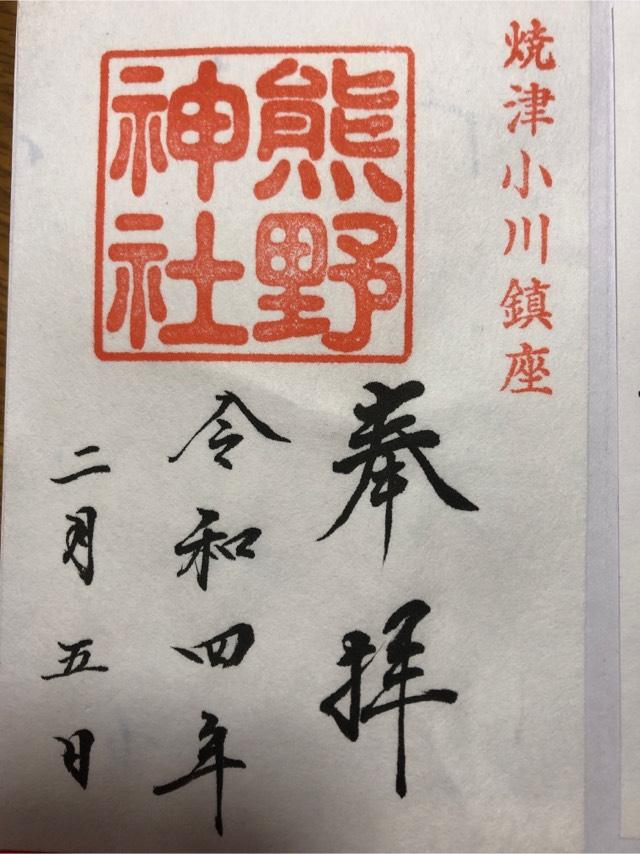 焼津小川鎮座
熊野
神社
奉拝
令和四年
二月五日